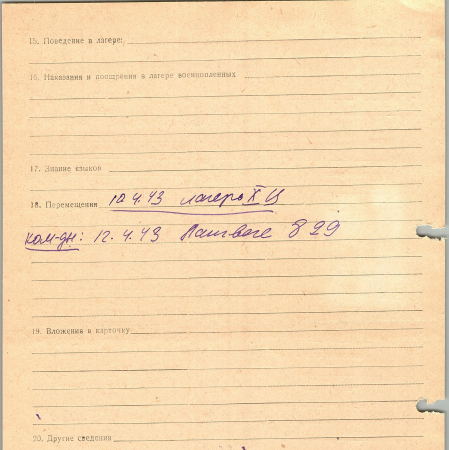 15. Поведение в лагере:
16. Наказания и поощрения в лагере военнопленных
17. Знание языков
18. Перемещения 12.4.43 лагерь X Ц
ком-дн: 12.4.43 Лангвеге 829
19. Вложения в карточку
20. Другие сведения